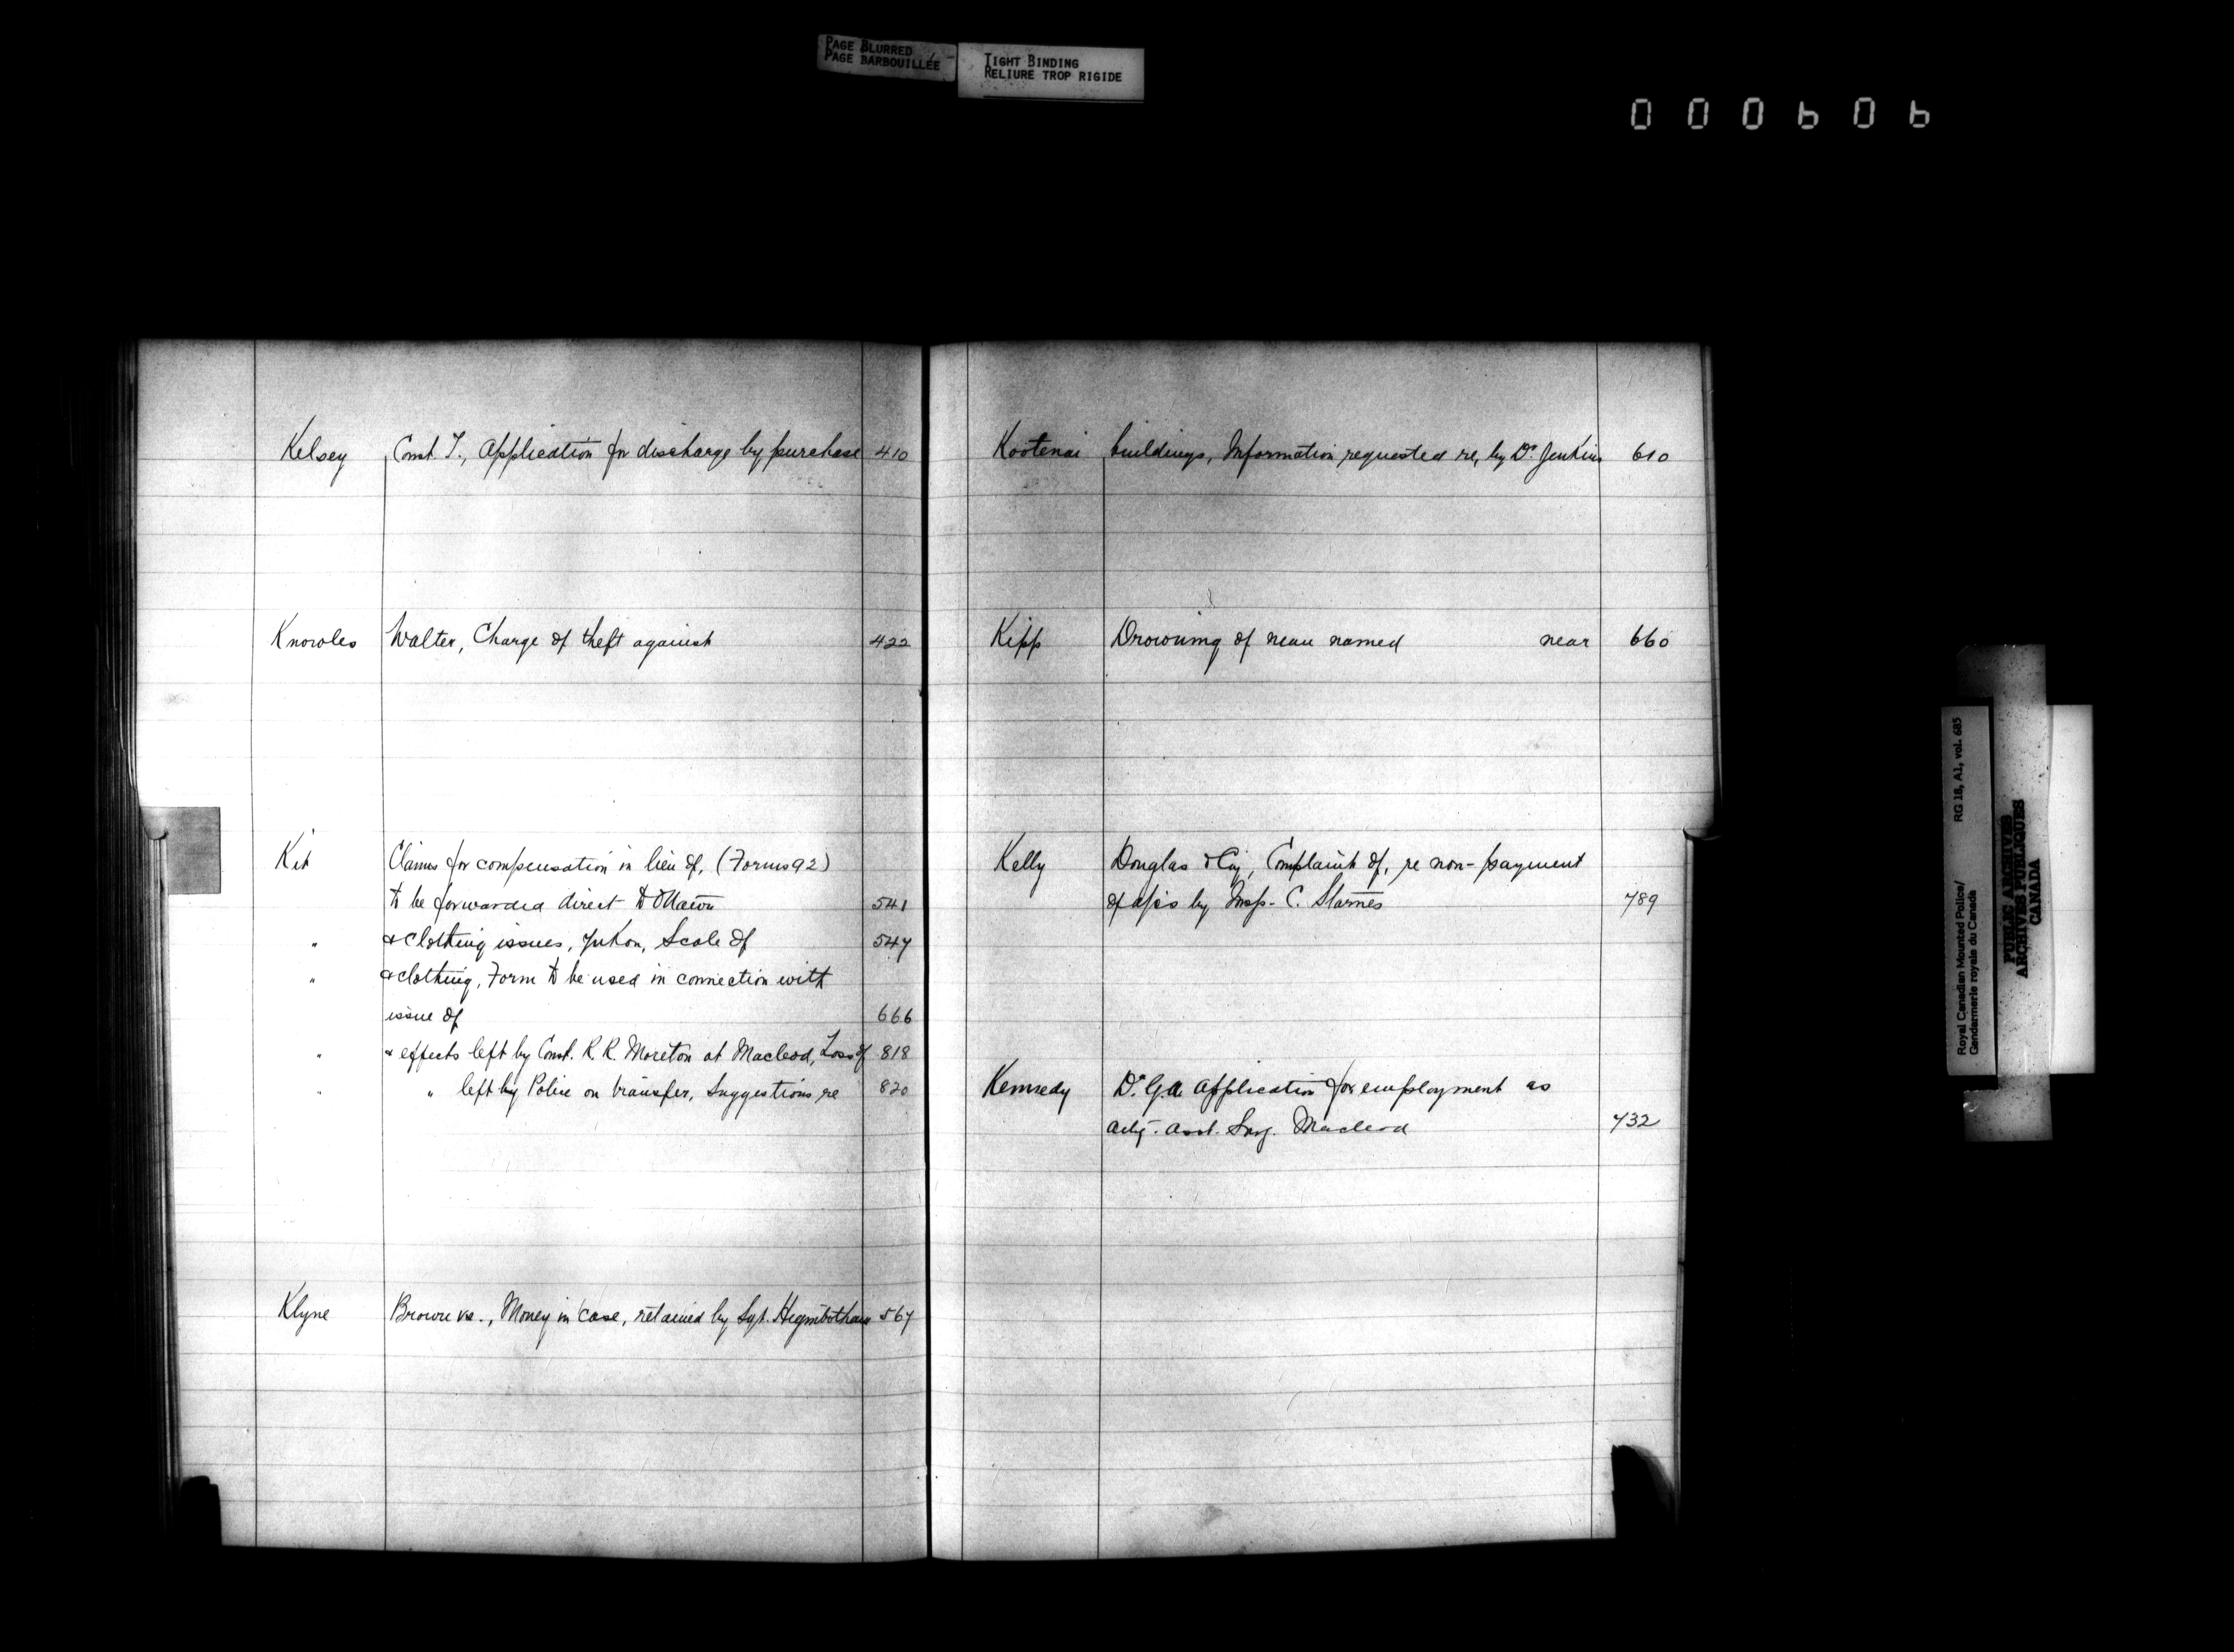 PAGE BLURRED
PAGE BARBOUILLÉE
TIGHT BINDING
RELIURE TROP RIGIDE
000606
Kelsey Const. T., Application for discharge by purchase 410
Knowles Walter, Charge of theft against 422
Kit Claims for compensation in lieu of, (Forms 92)
to be forwarded direct to Ottawa 541
" & clothing issues, Yukon, Scale of 547
" & clothing, Form to be used in connection with
issue of 666
" & effects left by Const. R. R. Moreton at Macleod, Loss of 818
" " left by Police on transfer, Suggestions re 820
Klyne Brown vs., Money in case, retained by Sgt. Higinbotham 567
Kootenai buildings, Information requested re, by Dr. Jenkins 610
Kipp Drowning of man named near 660
Kelly Douglas & Coy, Complaint of, re non-payment
of a/cs by Insp. C. Starnes 789
Kennedy Dr. G.A. Application for employment as
actg. asst. Surg. Macleod 732
Royal Canadian Mounted Police/ RG 18, A1, vol. 685
Gendarmerie royale du Canada
PUBLIC ARCHIVES
ARCHIVES PUBLIQUES
CANADA